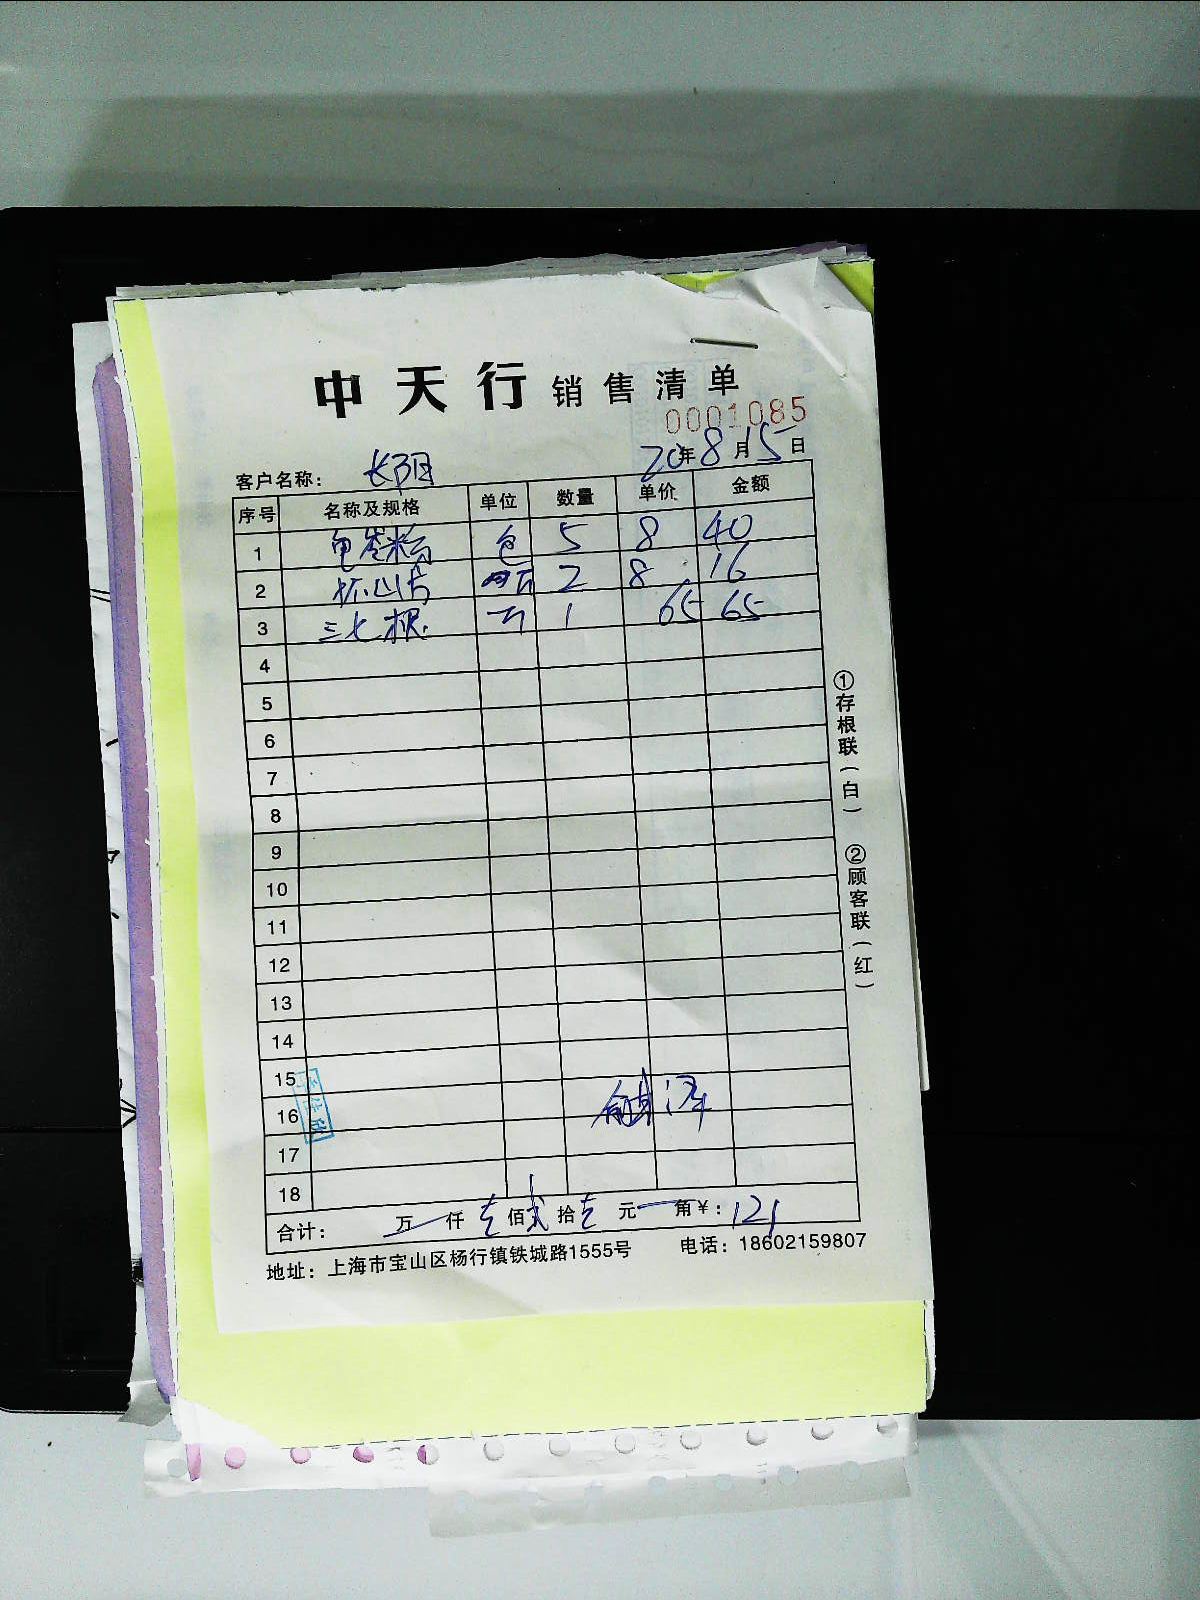 中天行 销售清单
0001085
20年8月15日
客户名称： 长阳
序号 名称及规格 单位 数量 单价 金额
1 包 5 8 40
2 2 8 16
3 三七根 1 65 65
4
5
6
7
8
9
10
11
12
13
14
15
16
17
18
合计： 万 仟 壹 佰 贰 拾 壹 元 角 ¥：121
地址：上海市宝山区杨行镇铁城路1555号 电话：18602159807
①存根联（白） ②顾客联（红）